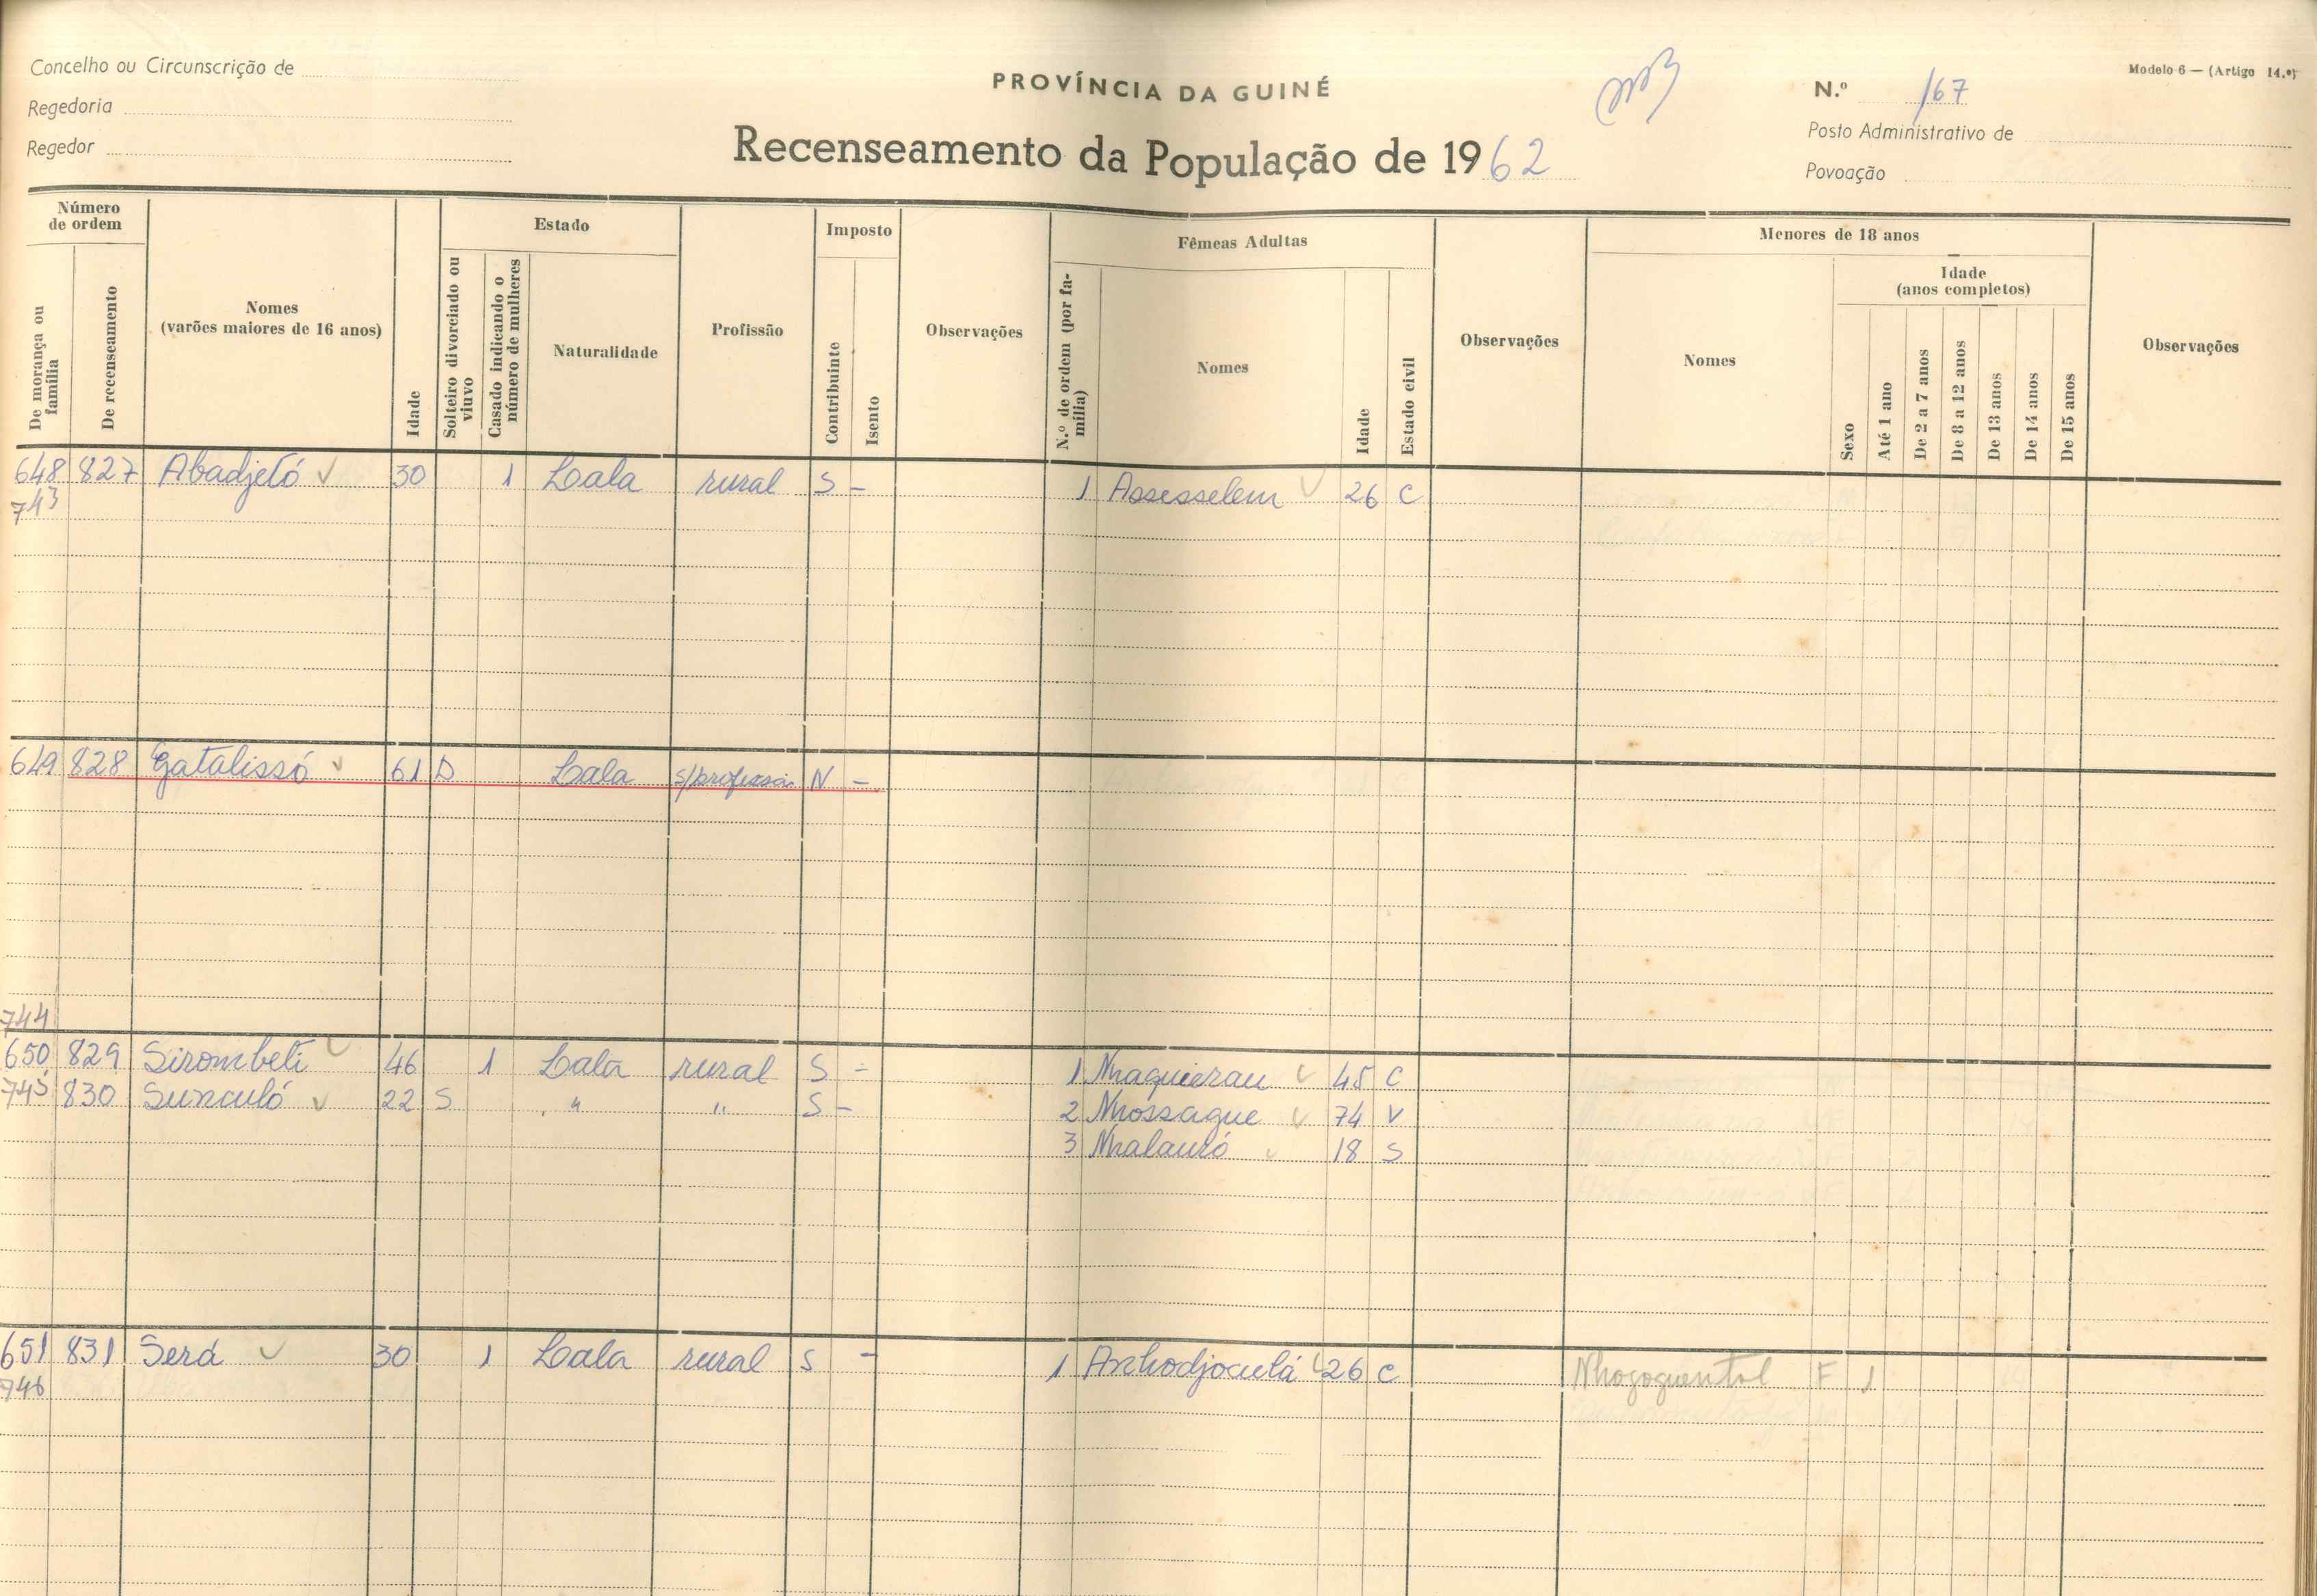 Concelho ou Circunscrição de
Regedoria
Regedor
PROVÍNCIA DA GUINÉ
Recenseamento da População de 1962
Modelo 6 — (Artigo 14.º)
N.º 167
Posto Administrativo de
Povoação
Número de ordem
De morança ou família
De recenseamento
Nomes
(varões maiores de 16 anos)
Idade
Estado
Solteiro divorciado ou viuvo
Casado indicando o número de mulheres
Naturalidade
Profissão
Imposto
Contribuinte
Isento
Observações
Fêmeas Adultas
N.º de ordem (por família)
Nomes
Idade
Estado civil
Observações
Menores de 18 anos
Nomes
Sexo
Idade
(anos completos)
Até 1 ano
De 2 a 7 anos
De 8 a 12 anos
De 13 anos
De 14 anos
De 15 anos
Observações
648 827 Abadjeló 30 1 Lala rural S - 1 Assesselem 26 C
743
649 828 Gatalissó 61 D Lala s/profissão N -
744
650 829 Sirombeti 46 1 Lala rural S - 1 Nhaquierau 45 C
745 830 Sunculó 22 S " " S - 2 Nhossague 74 V
3 Nhalauró 18 S
651 831 Será 30 1 Lala rural S - 1 Anhodjoculá 26 C Nhogoguentol F 1
746